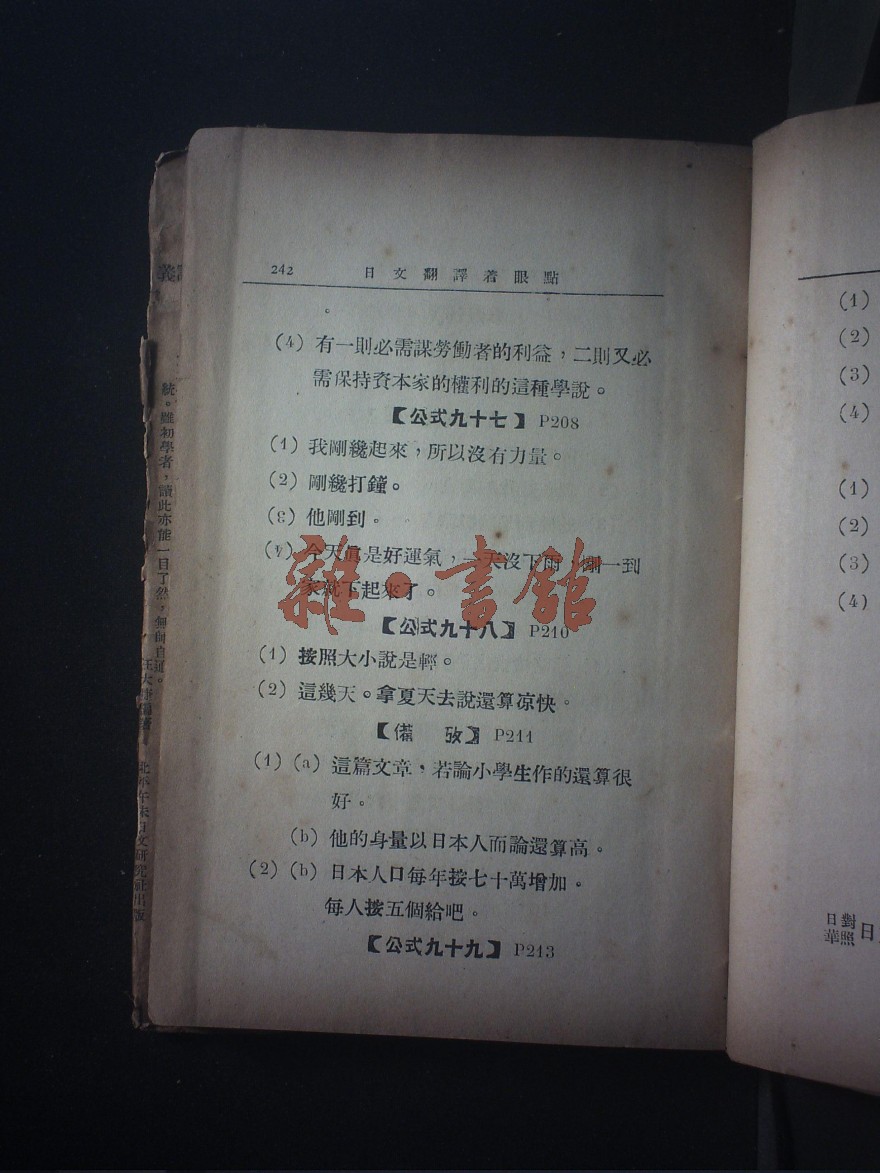 242 日文翻譯著眼點
。
(4) 有一則必需謀勞働者的利益，二則又必
需保持資本家的權利的這種學說。
【公式九十七】 P208
(1) 我剛纔起來，所以沒有力量。
(2) 剛纔打鐘。
(3) 他剛到。
(4) 今天真是好運氣，一天沒下雨 剛一到
家就下起來了。
【公式九十八】 P210
(1) 按照大小說是輕。
(2) 這幾天。拿夏天去說還算凉快。
【備 攷】 P211
(1) (a) 這篇文章，若論小學生作的還算很
好。
(b) 他的身量以日本人而論還算高。
(2) (b) 日本人口每年按七十萬增加。
每人按五個給吧。
【公式九十九】 P213
雜·書館
統。雖初學者，讀此亦能一目了然，無師自通。
文研究社出版
(1)
(2)
(3)
(4)
(1)
(2)
(3)
(4)
日華對照日